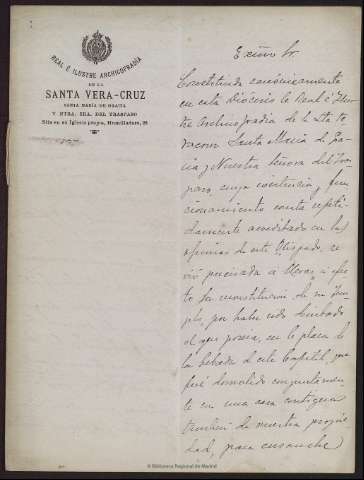 REAL É ILUSTRE ARCHICOFRADÍA
DE LA
SANTA VERA-CRUZ
SANTA MARÍA DE GRACIA
Y NTRA. SRA. DEL TRASPASO
Sita en su Iglesia propia, Humilladero, 25
Excmo Sr.
Constituida canónicamente
en esta Diócesis la Real é Ilus-
tre Archicofradia de la Sta Ve-
racruz Santa Maria de Gra-
cia y Nuestra Señora del Tras-
paso cuya existencia y fun-
cionamiento consta repeti-
damente acreditado en las
oficinas de este Obispado, se
vió precisada a llevar a efec-
to la reconstitucion de su Tem-
plo, por haber sido derribado
el que poseia, en la plaza de
la Cebada de esta Capital, que
fué demolido conjuntamen-
te en una casa contigua
tambien de nuestra propie-
dad, para ensanche
© Biblioteca Regional de Madrid